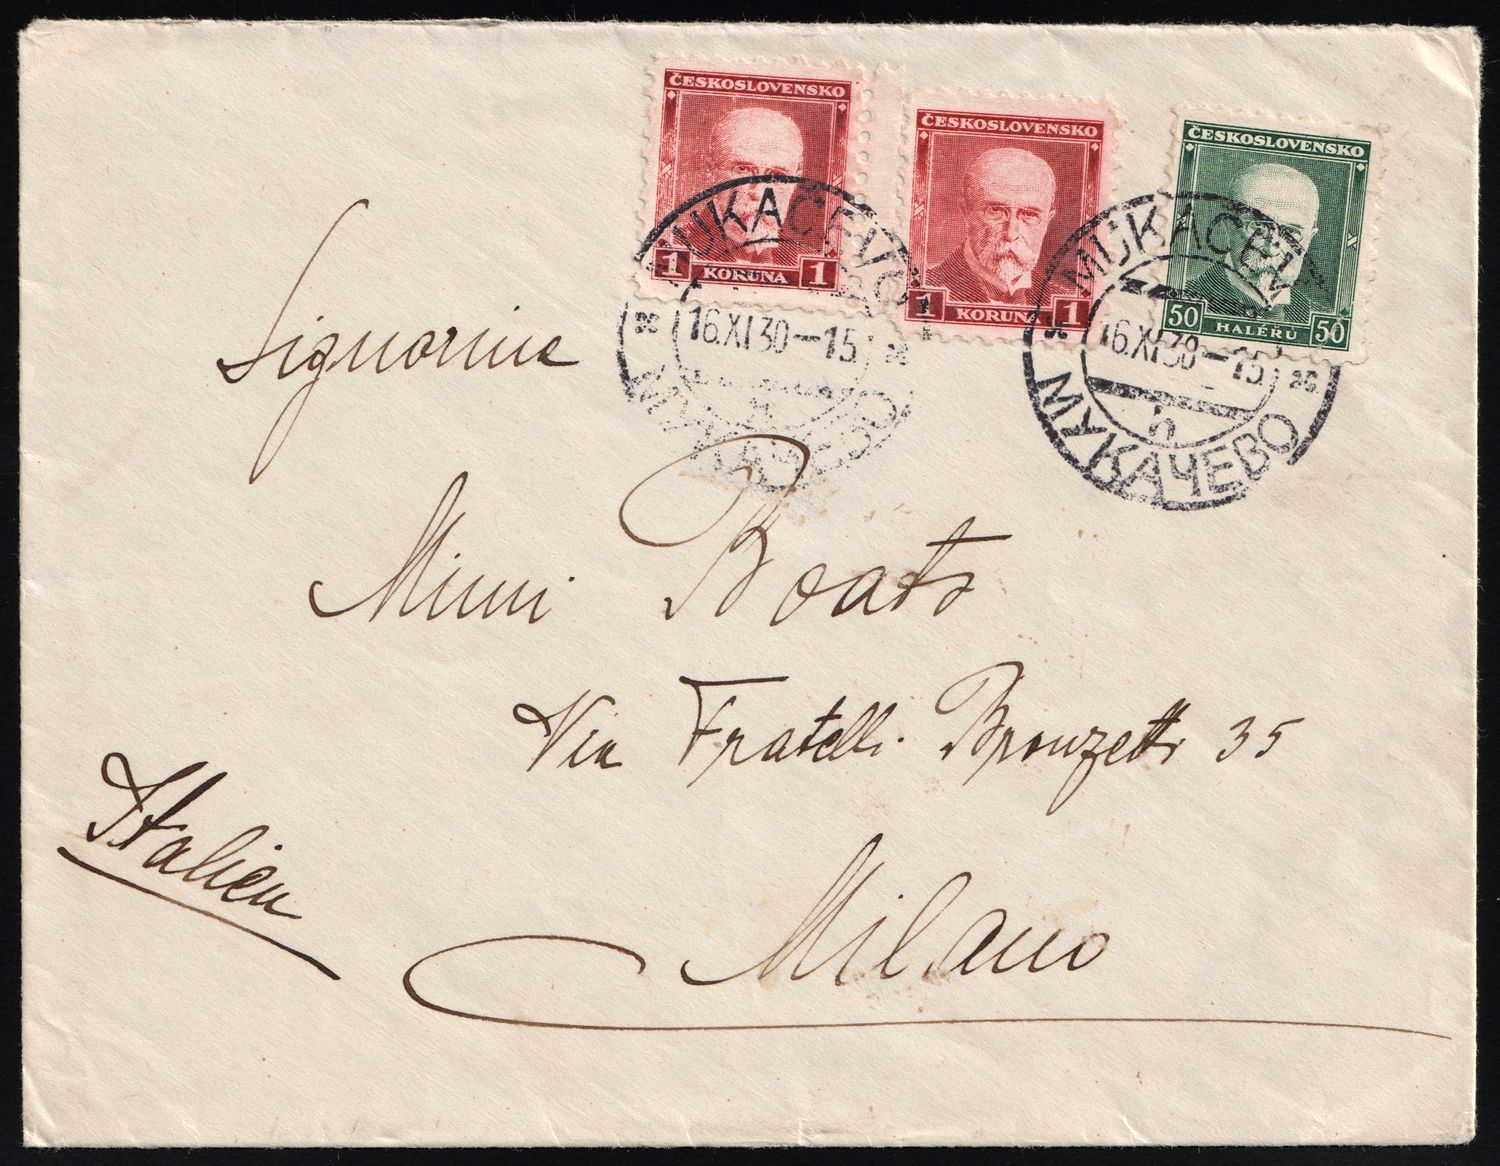 ČESKOSLOVENSKO
1 KORUNA 1
ČESKOSLOVENSKO
1 KORUNA 1
ČESKOSLOVENSKO
50 HALÉŘŮ 50
MUKAČEVO
16.XI.30-15
МУКАЧЕВО
MUKAČEVO
16.XI.30-15
h
МУКАЧЕВО
Signorina
Mimi
Via Fratelli Bronzetti 35
Italien
Milano